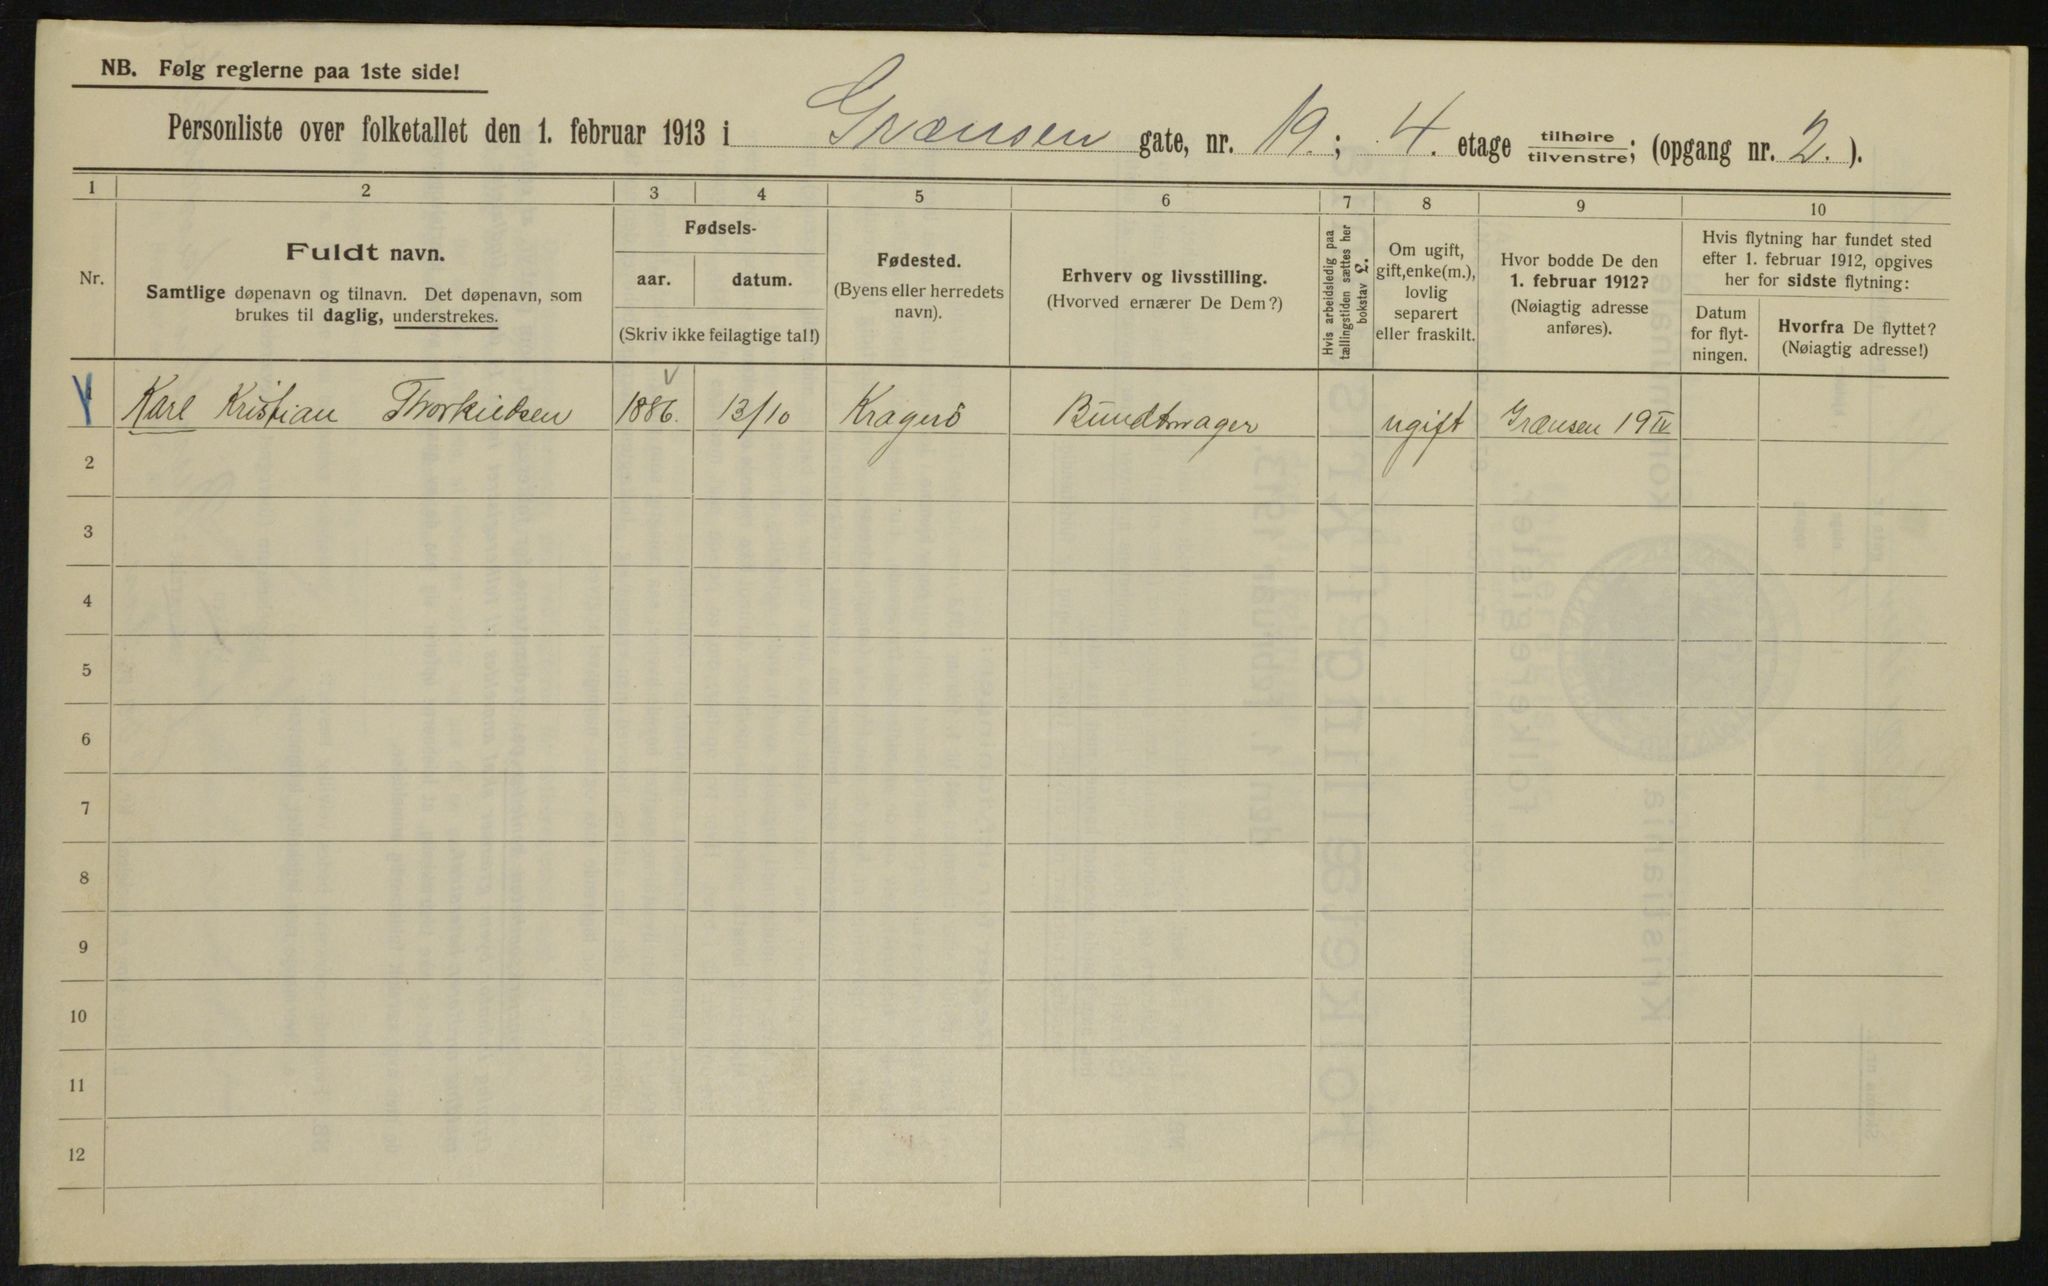 NB. Følg reglerne paa 1ste side!
Personliste over folketallet den 1. februar 1913 i Grænsen gate, nr. 19.; 4. etage tilhøire/tilvenstre; (opgang nr. 2.).
1 2 3 4 5 6 7 8 9 10
Nr.
Fuldt navn.
Samtlige døpenavn og tilnavn. Det døpenavn, som
brukes til daglig, understrekes.
Fødsels-
aar. datum.
(Skriv ikke feilagtige tal!)
Fødested.
(Byens eller herredets
navn).
Erhverv og livsstilling.
(Hvorved ernærer De Dem?)
Hvis arbeidsledig paa
tællingstiden sættes her
bokstav L.
Om ugift,
gift, enke(m.),
lovlig
separert
eller fraskilt.
Hvor bodde De den
1. februar 1912?
(Nøiagtig adresse
anføres).
Hvis flytning har fundet sted
efter 1. februar 1912, opgives
her for sidste flytning:
Datum
for flyt-
ningen.
Hvorfra De flyttet?
(Nøiagtig adresse!)
1 Karl Kristian Thorkildsen 1886. 13/10 Kragerö Bundtmager ugift Grænsen 19 IV
2
3
4
5
6
7
8
9
10
11
12